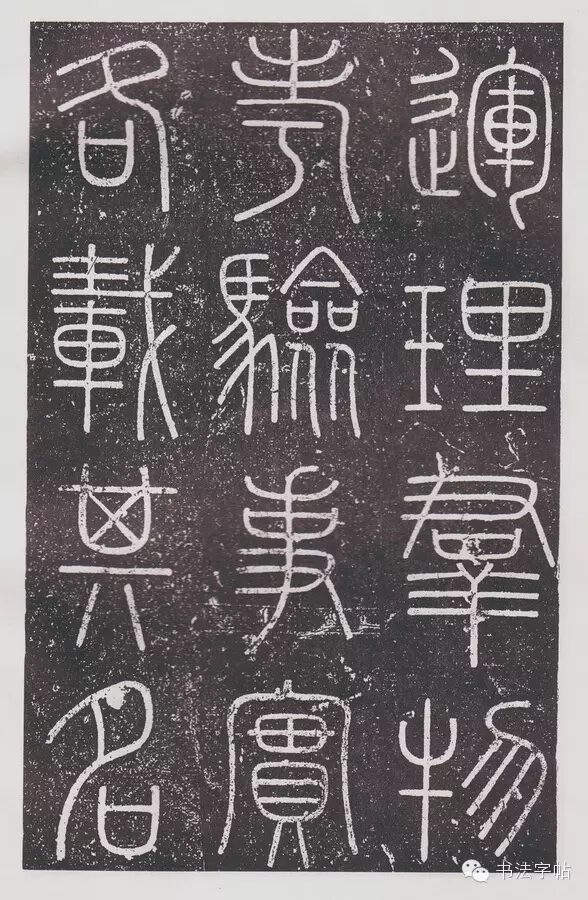 運理群物
考驗事實
各載其名
书法字帖